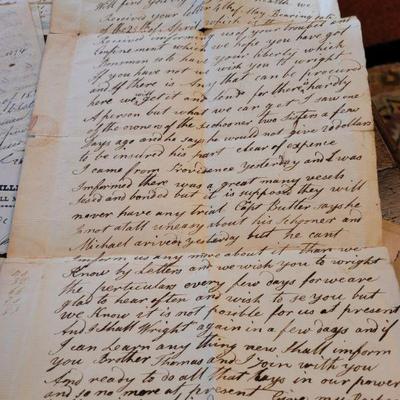 Will find you
Receive your letter 4th of May Bearing date
of the
informing us of your troubles and
confinement which we hope you have got
from and have your liberty which
If you have not we wish you to wright
and if there is any that can be procured
here we will get it and send for there hardly
A person but what we can get I saw one
of the owners of the Schooner two Sisters a few
Days ago and he says he would not give 20 dollars
to be insured his part clear of expence
I came from Providence yesterday and I was
Informed there was a great many vesels
seised and bonded but it is supposed they will
never have any trial Capt Butler says he
is not atall uneasy about his Schooner and
Michael arived yesterday but he cant
inform us any more about it than we
Know by Letters and we wish you to wright
the perticulars every few days for we are
glad to hear often and wish to se you but
we Know it is not posible for us at present
And I Shall Wright again in a few days and if
I can Learn any thing new Shall inform
you Brother Thomas and I join with you
And ready to do all that Lays in our power
and so no more at present Give my